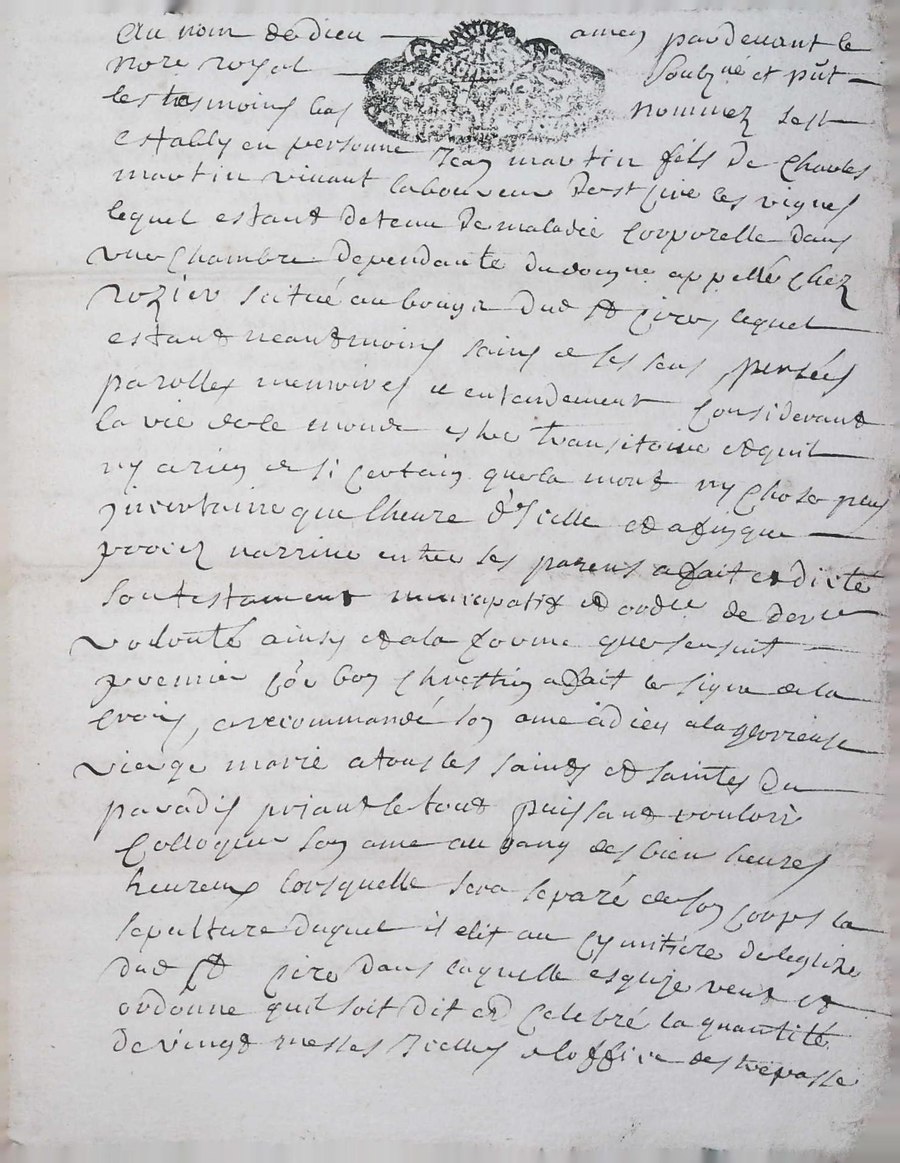 Au nom de dieu amen pardevant le
no.re royal soubz.né et p.nt
les tesmoins bas nommez s'est
estably en personne Jean martin fils de Charles
martin vivant laboureur de st Cire les vignes
lequel estant detenu de maladie corporelle dans
une chambre dependante du domaine appellé chez
rozier scitué au bourg dud st Cire, lequel
estant neantmoins sains de ses sens pensées
parolles memoires et entendement considerant
la vie de le monde estre transitoire et quil
ny a rien de si certain que la mort ny chose plus
incertaine que lheure d'icelle et afin que
procez narrive entre ses parens a fait et dicté
son testament nuncupatif et ordre de derre
volonté ainsy et a la forme que sensuit
premier co.e bon chrestien a fait le signe de la
croix, a recommandé son ame à dieu a la glorieuse
vierge marie a tous les saints et saintes du
paradis priant le tout puissant vouloir
colloquer son ame au rang des bien heures
heureux lorsquelle sera separé de son corps la
sepulture duquel il elit au cymitiere de leglize
dud st Cire dans laquelle esglize veut et
ordonne quil soit dit et celebré la quantité
de vingt messes Icelles a loffice des trepasse